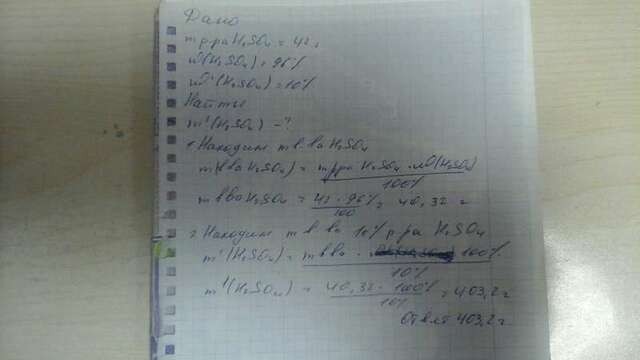 Дано
m р-ра H₂SO₄ = 42 г
ω(H₂SO₄) = 96%
ω'(H₂SO₄) = 10%
Найти
m'(H₂SO₄) - ?
1 Находим m в-ва H₂SO₄
m(в-ва H₂SO₄) = m р-ра H₂SO₄ · ω(H₂SO₄) / 100%
m в-ва H₂SO₄ = 42 · 96% / 100 = 40,32 г
2 Находим m в-ва 10% р-ра H₂SO₄
m'(H₂SO₄) = m в-ва · 100% / 10%
m'(H₂SO₄) = 40,32 · 100% / 10% = 403,2 г
Ответ 403,2 г